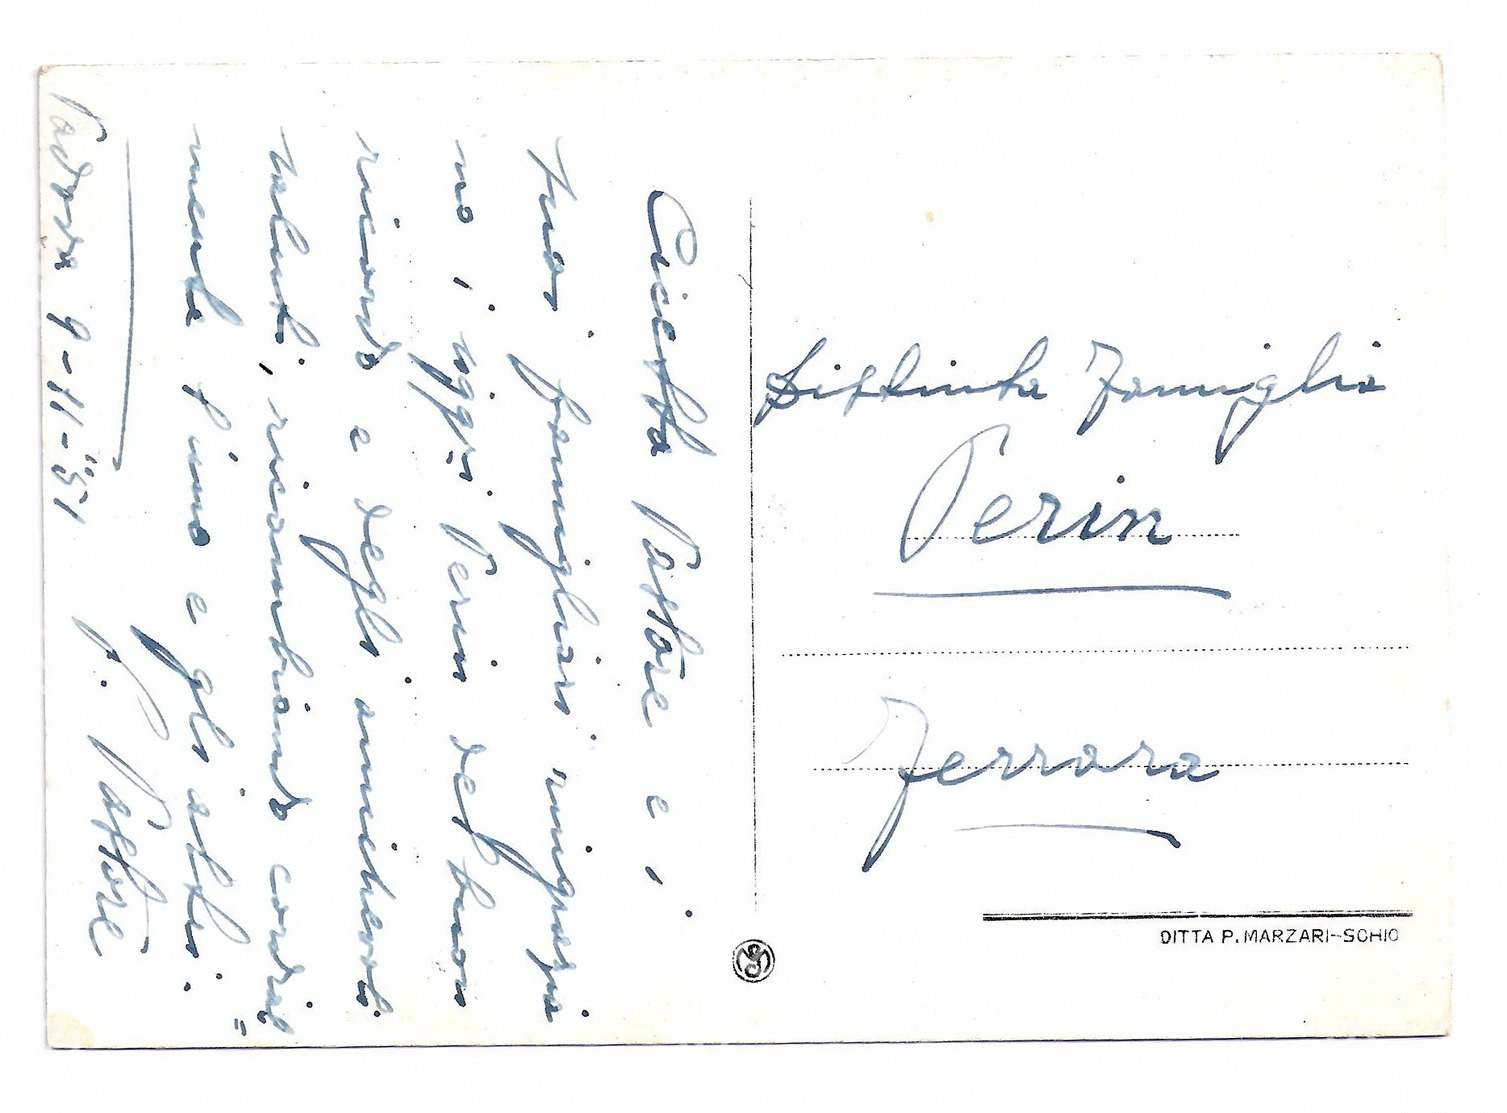 Cicetta Pastore e i
suoi famigliari ringrazia
no i sigg. Perin del buon
ricordo e degli amichevoli
saluti, ricambiando cordial=
mente l'uno e gli altri.
P. Pastore
Padova 9-11-'51
Distinta Famiglia
Perin
Ferrara
DITTA P. MARZARI-SCHIO